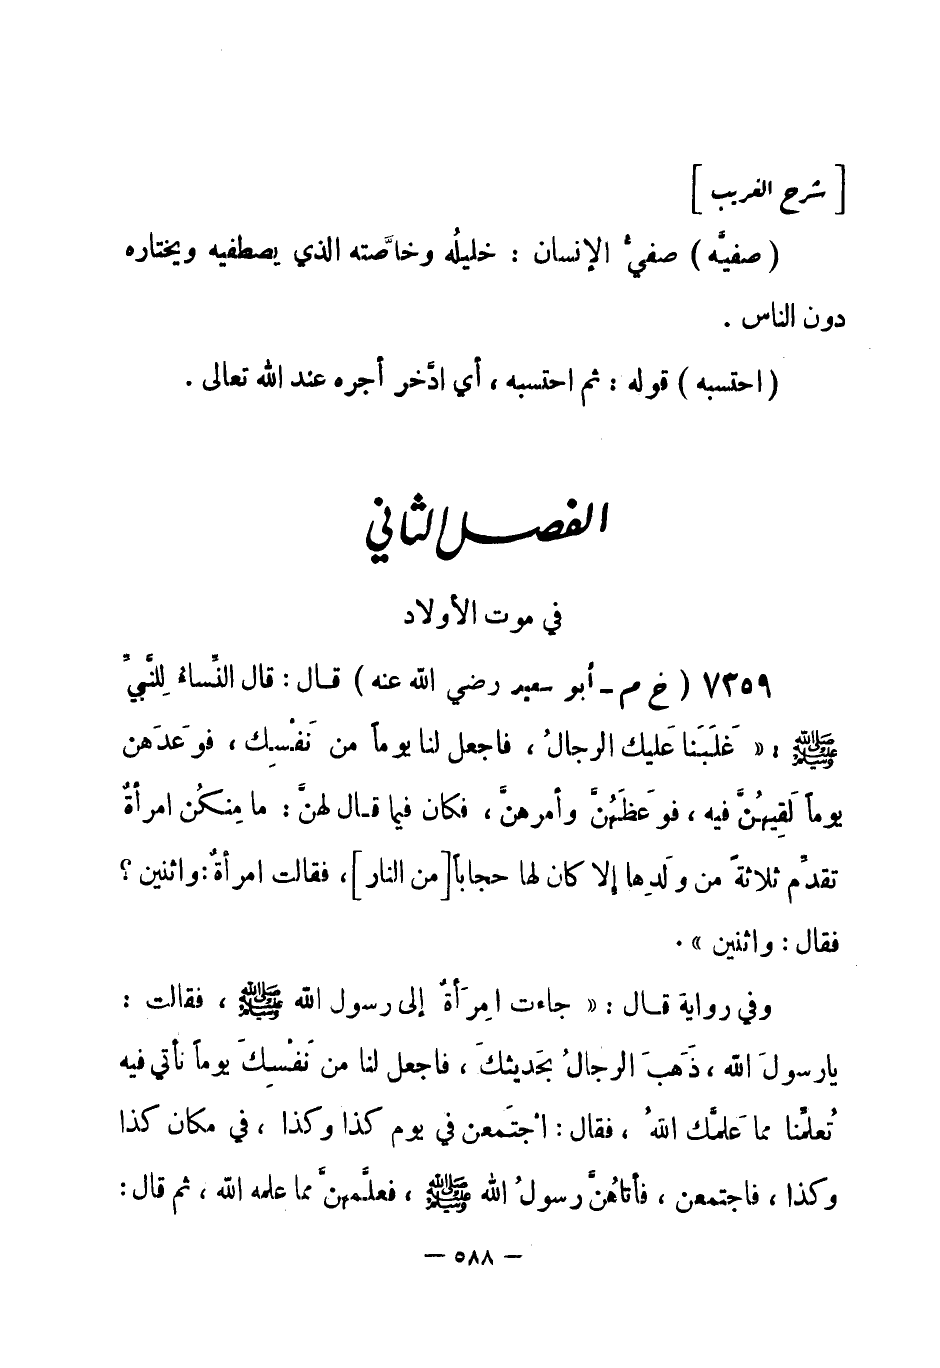 [ شرح الغريب ]
( صفيَّه ) صفيُّ الإنسان : خليلُه وخاصَّته الذي يصطفيه ويختاره
دون الناس .
( احتسبه ) قوله : ثم احتسبه ، أي ادَّخر أجره عند الله تعالى .
الفصل الثاني
في موت الأولاد
٧٣٥٩ ( خ م - أبو سعيد رضي الله عنه ) قال : قال النِّساءُ لِلنَّبيِّ
ﷺ : « غَلَبَنا عَليك الرجالُ ، فاجعل لنا يوماً من نَفْسِك ، فوَعدَهن
يوماً لَقِيهُنَّ فيه ، فوَعظَهُنَّ وأمرهنَّ ، فكان فيما قال لهنَّ : ما مِنكُن امرأةٌ
تقدِّم ثلاثةً من وَلَدِها إلا كان لها حجاباً [من النار] ، فقالت امرأةٌ : واثنين ؟
فقال : واثنين » .
وفي رواية قال : « جاءت امِرَأةٌ إلى رسول الله ﷺ ، فقالت :
يارسولَ الله ، ذَهبَ الرجالُ بحَديثكَ ، فاجعل لنا من نَفْسِكَ يوماً نأتي فيه
تُعلمِّنا مما عَلمَّك اللهُ ، فقال : اجتَمعن في يوم كذا وكذا ، في مكان كذا
وكذا ، فاجتمعن ، فأتاهُنَّ رسولُ الله ﷺ ، فعلَّمهنَّ مما علمه الله ، ثم قال :
— ٥٨٨ —